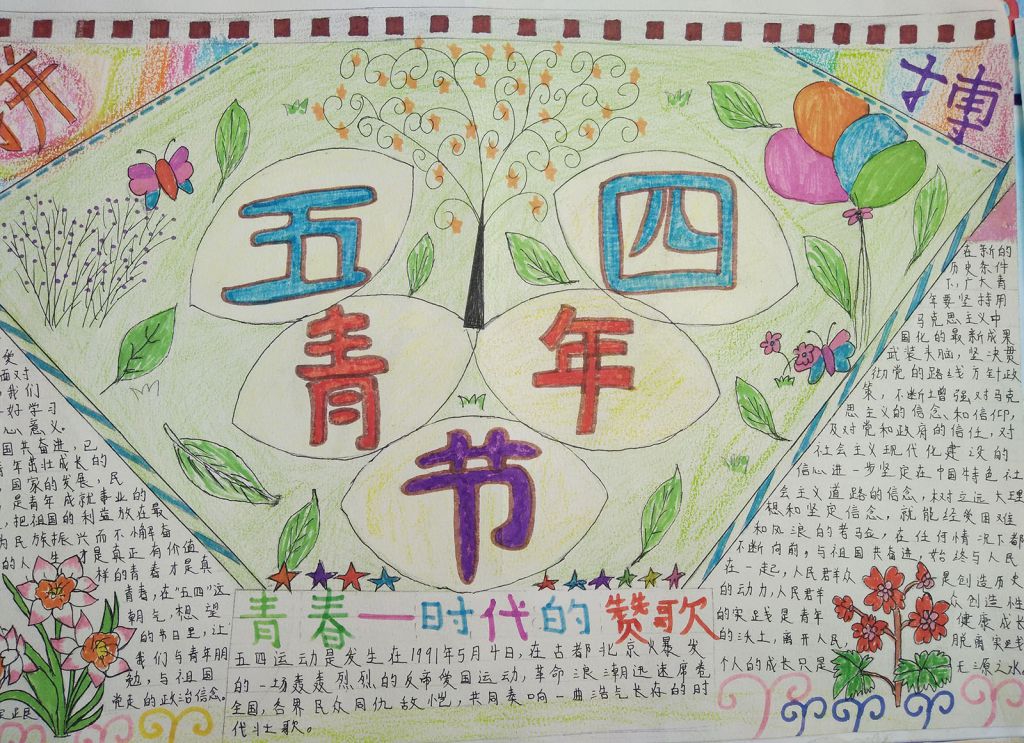 拼
搏
五四
青年
节
青春一时代的赞歌
五四运动是发生在1991年5月4日,在古都北京火暴发
的一场轰轰烈烈的反帝爱国运动,革命浪潮迅速席卷
全国,各界民众同仇敌忾,共同奏响一曲浩气长存的时
代壮歌。
面对
我们
好学习
心意义。
国共奋进,已
年茁壮成长的
国家的发展,民
是青年成就事业的
把祖国的利益放在最
为民族振兴而不懈奋
的人生才是真正有价值
样的青春才是真
青春,在"五四"这
朝气,想望
的节日里,让
我们与青年朋
勉,与祖国
党走的政治信念。
在新的
历史条件
下,广大青
年要坚持用
马克思主义中
国化的最新成果
武装头脑,坚决贯
彻党的路线方针政
策,不断增强对马克
思主义的信念、和信仰,
及对党和政府的信任,对
社会主义现代化建设的
信心进一步坚定在中国特色社
会主义道路的信念,树立远大理
想和坚定信念,就能经受困难
和风浪的考验,在任何情况下都
不断向前,与祖国共奋进,始终与人民
在一起,人民群众是创造历史
的动力,人民群众创造性
的实践是青年健康成长
的沃土,离开人民,脱离实践
个人的成长只是无源之水